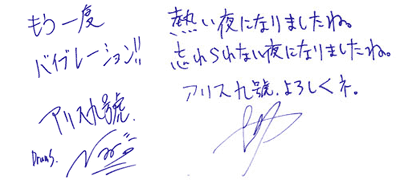 もう一度
バイブレーション!!
アリス九號.
Drums.
熱い夜になりましたね。
忘れられない夜になりましたね。
アリス九號.よろしくネ。